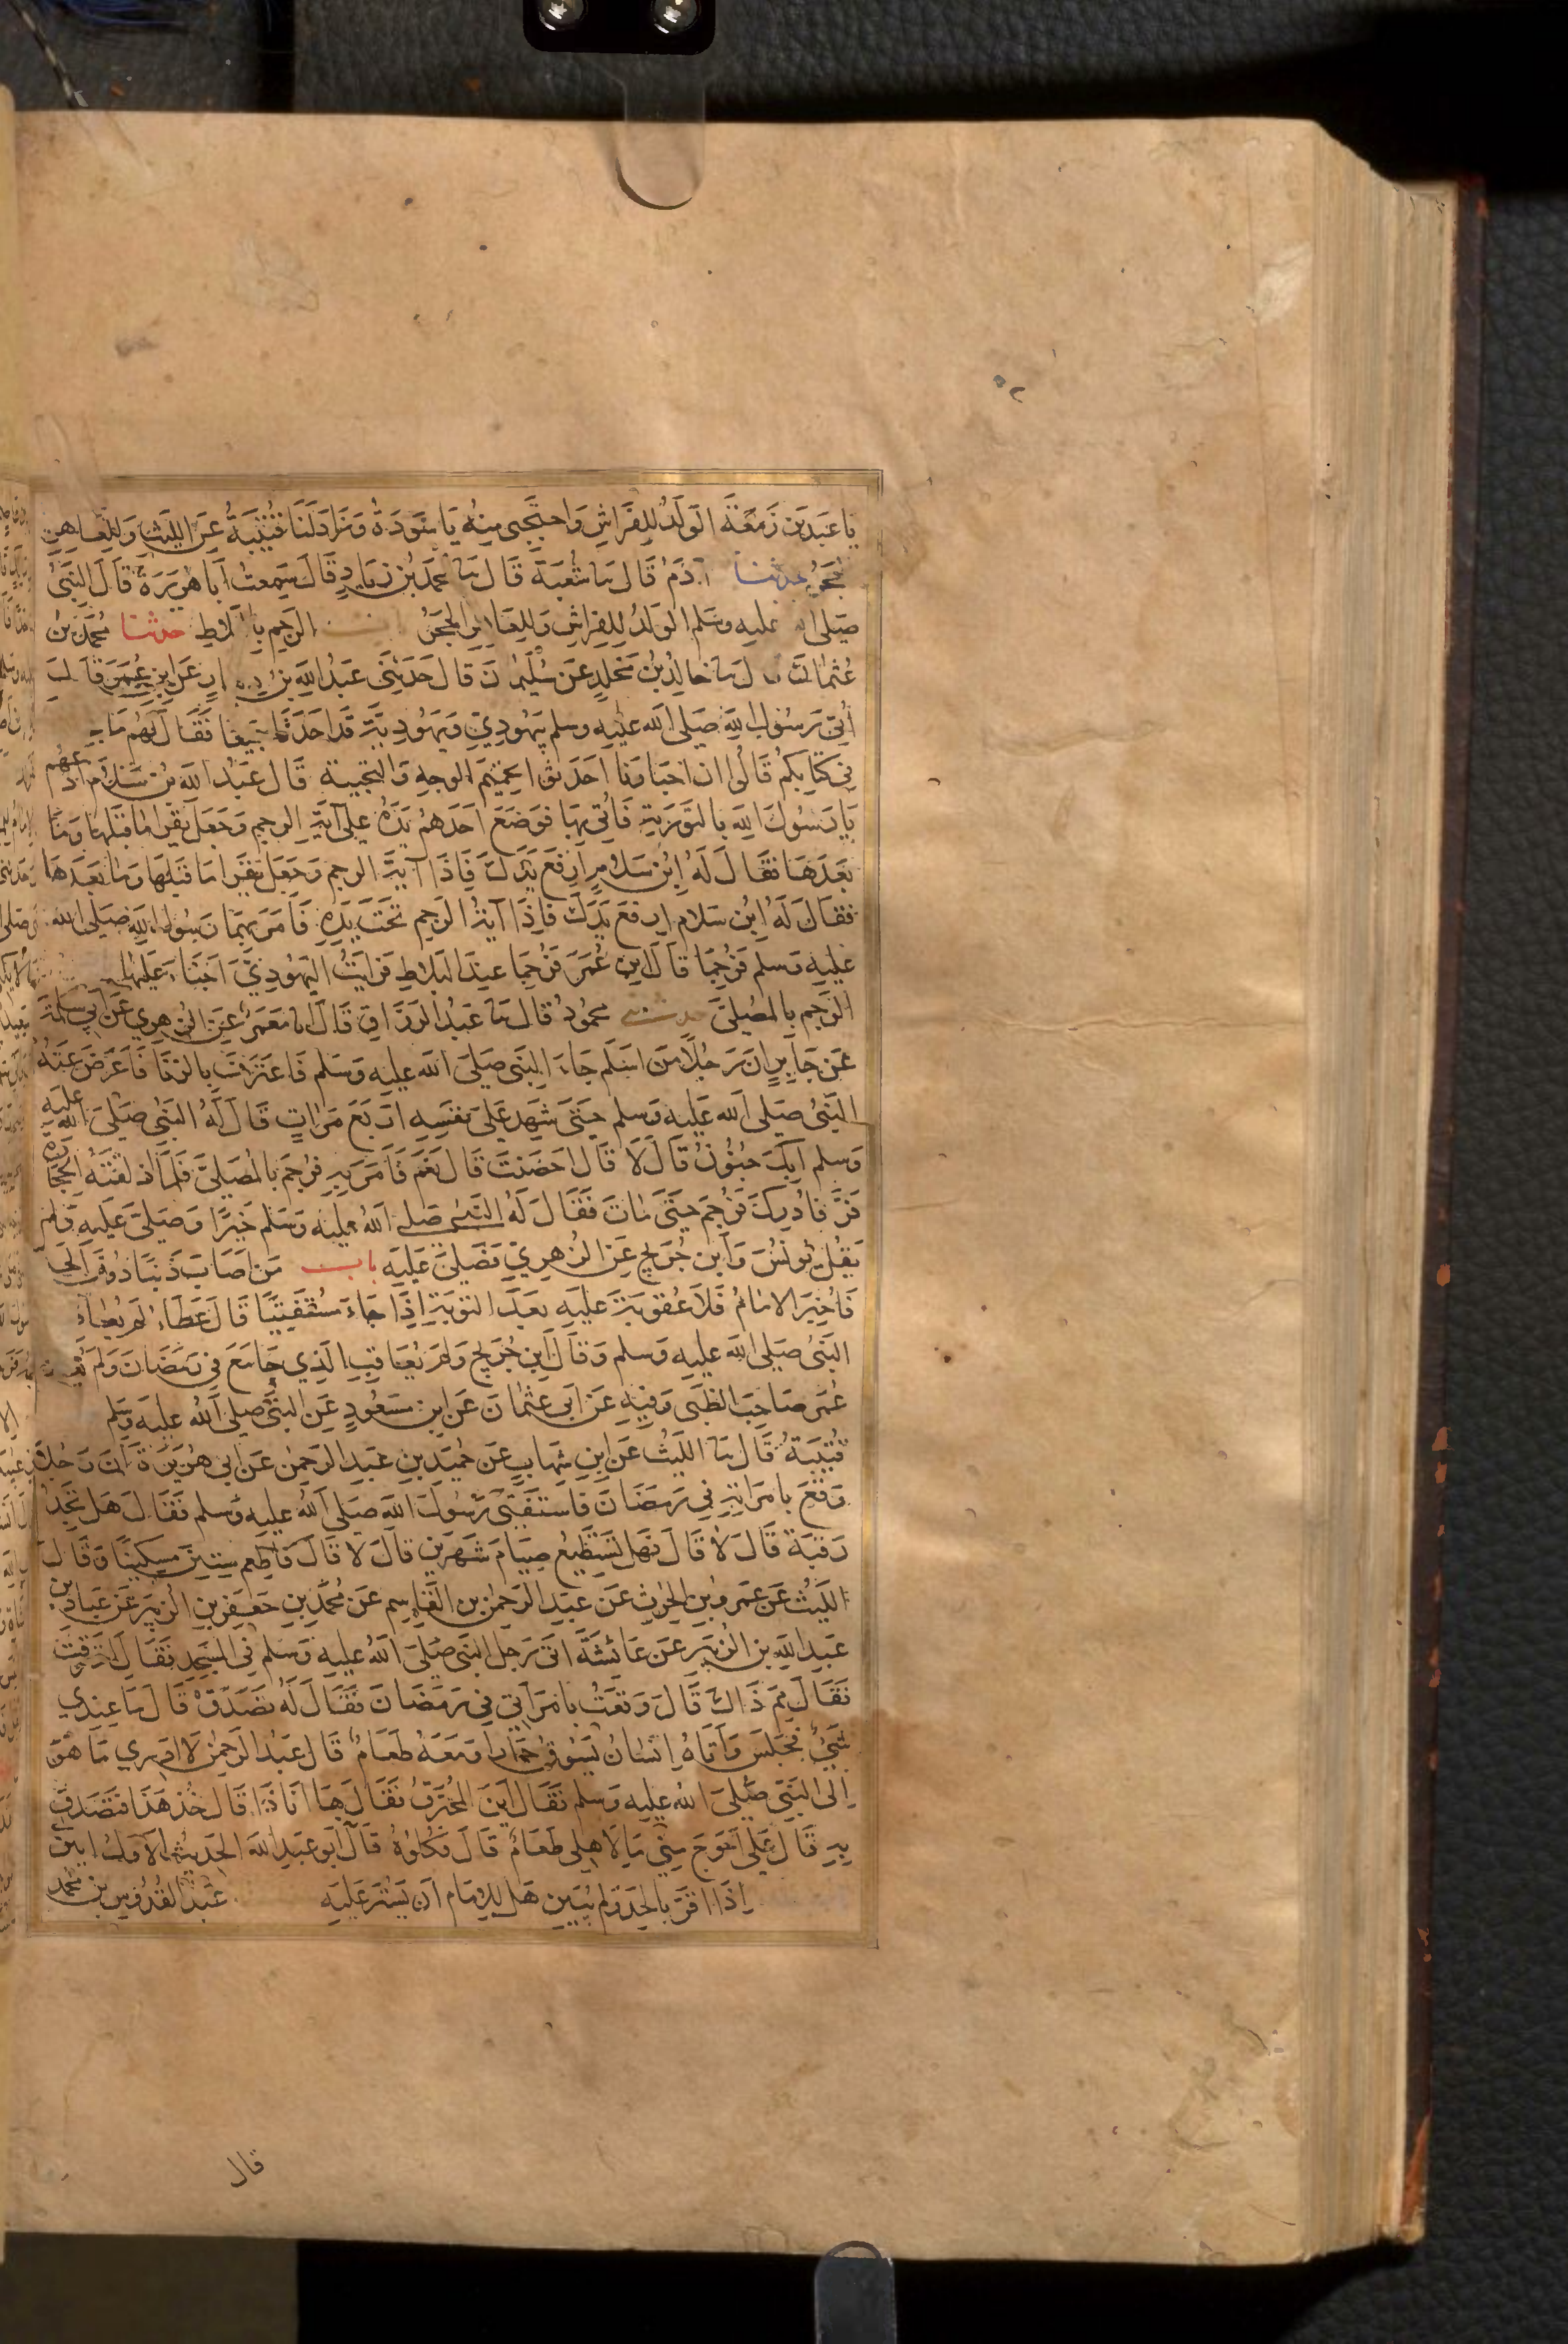 يَا عَبْدَ بْنَ زَمْعَةَ الوَلَدُ لِلفِرَاشِ وَاحْتَجِبِي مِنْهُ يَا سَوْدَةُ وَزَادَ لَنَا قُتَيْبَةُ عَنِ اللَّيْثِ وَلِلعَاهِرِ
الحَجَرُ حدثنا آدَمُ قَالَ نا شُعْبَةُ قَالَ نا مُحَمَّدُ بْنُ زِيَادٍ قَالَ سَمِعْتُ أَبَا هُرَيْرَةَ قَالَ النَّبِيُّ
صَلى الله عليه وسَلم الوَلَدُ لِلفِرَاشِ وَلِلعَاهِرِ الحَجَرُ باب الرَجمِ بِالبَلَاطِ حدثنا مُحَمَّدُ بْنُ
عُثْمَانَ قال نا خالِدُ بْنُ مَخْلَدٍ عَنْ سُلَيْمَانَ قَالَ حَدَثَنِي عَبْدُ اللهِ بْنُ دينارٍ عَنِ ابنِ عُمَرَ قَالَ
أُتِيَ رَسُولُ اللهِ صَلى الله عليه وسلم بِيَهُودِيٍّ وَيَهُودِيَّةٍ قَد احدَثَا جَمِيعًا فَقَالَ لَهُم مَا
فِي كتَابِكُم قَالُوا ان احبَارَنَا احدَثوا تحميمَ الوجهِ وَالتجبية قَالَ عَبْدُ الله بْنُ سَلَامٍ ادعُهُم
يَا رَسُولَ اللهِ بِالتَّوْرَيةِ فَأُتِيَ بِهَا فوَضَعَ احَدُهُم يَدَهُ عَلى آيَةِ الرجم وَجَعَلَ يَقرَا مَا قبلهَا وَمَا
بَعدَهَا فقَالَ لَهُ ابنُ سَلَامٍ ارفَع يَدَكَ فَاِذَا آيَةُ الرجم وَجَعَلَ يَقرَا مَا قَبلَهَا وَمَا بَعدَهَا
فقَالَ لَهُ ابنُ سَلَام ارفَع يَدَكَ فَاِذَا آيَةُ الرَجمِ تَحْتَ يَدِهِ فَامَرَ بِهِمَا رَسُولُ اللهِ صَلى الله
عليه وَسلم فَرُجِمَا قَالَ ابن عُمَرَ فَرُجِمَا عِندَ البَلَاطِ فَرَايْتُ اليَهُودِيَّ اَجْنَأَ عَلَيْهَا
الرَجمِ بالمُصَلّى حدثني محمُودُ قال نا عَبْدُ الرَزَّاقِ قَالَ انا مَعمَرٌ عَنِ الزهرِي عَن أبي سَلمَةَ
عَن جَابِرٍ ان رَجُلًا مِن اسلَم جَاءَ النبِيَّ صَلى الله عليه وَسَلم فَاعتَرَفَ بالزنَا فَاَعرَضَ عَنْهُ
النَبيُّ صَلى الله عَليه وَسلم حَتَّى شَهِدَ عَلى نفسِهِ اربَعَ مَرّاتٍ قَالَ لَهُ النَبيُّ صَلى الله عليه
وَسلم ابِكَ جنُونٌ قَالَ لَا قَالَ احصَنتَ قَالَ نَعَم فَامَرَ بِهِ فرُجمَ بِالمُصَلَّى فَلَمَّا اذلَقَتْهُ الحِجَارَةُ
فَرَّ فَادرِكَ فَرُجِمَ حَتَّى مَاتَ فَقَالَ لَهُ النَبيُ صَلى اللهُ عليه وَسَلم خَيْرًا وَصَلّى عَلَيهِ وَلم
يَقُل يُونُسُ وَابن جُرَيج عَنِ الزهرِيِّ فَصَلى عَلَيهِ باب مَن اصَابَ ذَنبًا دُونَ الحَدِّ
فَاخبَرَ الامَامَ فَلَا عُقوبَةَ عَلَيهِ بعدَ التوبَةِ اِذَا جَاءَ مُستَفتِيًا قَالَ عَطَاءٌ لَم يُعَاقِبهُ
النَبيُّ صَلى الله عليه وسلم وَقَالَ ابن جُرَيج وَلَم يُعَاقِبِ الَذِي جَامَعَ فِي رَمَضَانَ وَلَم يُعَاقِب
عُمَر صَاحِبَ الظَبيِ وَفِيهِ عَن أبي عُثمَانَ عَن ابنِ مَسعُودٍ عَنِ النبيِّ صَلى الله عليه وَسَلم
قُتَيبَةُ قَالَ نا اللَيثُ عَن ابنِ شِهَابٍ عَن حُمَيد بنِ عَبدِ الرَحمٰن عَن ابي هُرَيرَةَ انَّ رَجُلًا
وَقَعَ بِامرَاتِهِ فِي رَمَضَانَ فَاستَفتَى رَسُولَ اللهِ صَلى الله عليه وَسلم فَقَالَ هَل تَجِدُ
رَقبَةً قَالَ لَا قَالَ فَهَل تَستَطِيعُ صِيَامَ شَهرَينِ قَالَ لَا قَالَ فَاَطعِم سِتينَ مِسكِينًا وَقَالَ
اللَيثُ عَن عَمرِو بن الحٰرِثِ عَن عَبدِ الرَحمٰن بن القَاسِم عَن مُحَمَّدِ بنِ جَعفَرِ بنِ الزبَيرِ عَن عَبَّادِ بن
عَبدِ اللهِ بنِ الزبَيرِ عَن عَائشَةَ اتَى رَجل النبيَّ صَلى الله عليه وَسَلم فِي المَسجِدِ فَقَالَ احتَرَقتُ
فَقَالَ مِمَّ ذَاكَ قَالَ وَقَعتُ بِامرَاتِي فِي رَمَضَانَ فَقَالَ لَهُ تَصَدَّق قَالَ مَا عِندِي
شَيءٌ فَجَلَسَ وَأَتَاهُ اِنسَانٌ يَسُوقُ حِمَارًا وَمَعَهُ طَعَامٌ قَالَ عَبدُ الرَحمٰن لَا ادرِي مَا هُوَ
اِلى النَبيِّ صَلى الله عليه وَسلم فَقَالَ اينَ المُحتَرِقُ فَقَالَ هَا انَا ذَا قَالَ خُذ هَذَا فتَصَدَّق
بِهِ قَالَ عَلى احوَجَ مِنّي مَا لِاهلِي طَعَامٌ قَالَ فَكُلُوهُ قَالَ ابُو عَبدِ الله الحَدِيثُ الاوّلُ ابيَنُ
اِذَا اقَرَّ بِالحَدِّ وَلم يُبَيِّن هَل لِلاِمَام اَن يَستُرَ عَلَيهِ عَبدُ القُدُّوسِ بن مُحَمَّد
قال